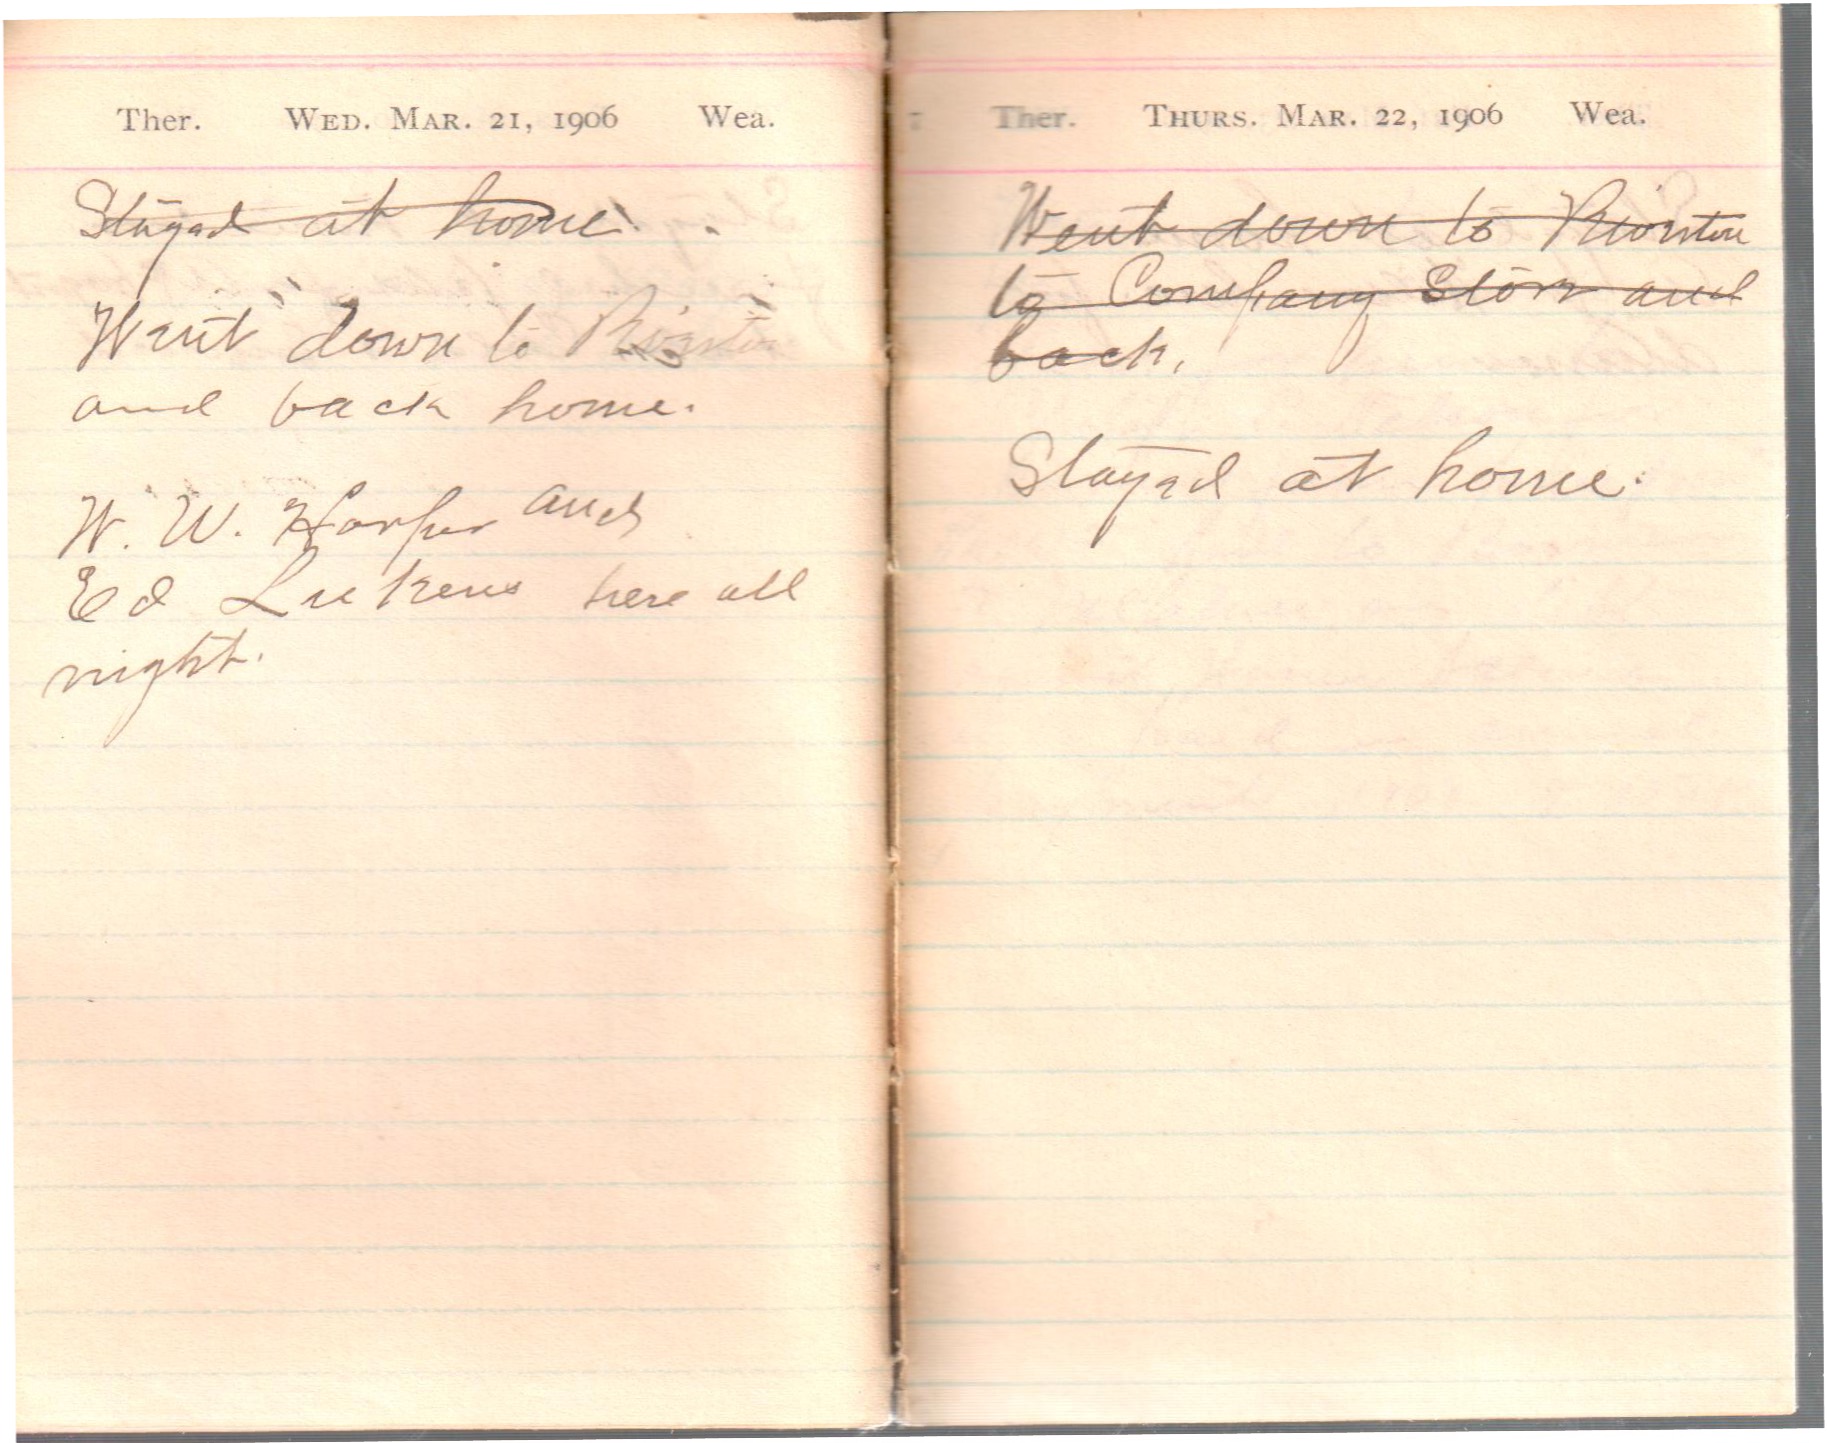 Ther. WED. MAR. 21, 1906 Wea.
Stayed at home.
Went down to Riverton
and back home.
W. W. Harper and
Ed Lukens here all
night.
Ther. THURS. MAR. 22, 1906 Wea.
Went down to Riverton
to Company Store and
back.
Stayed at home.